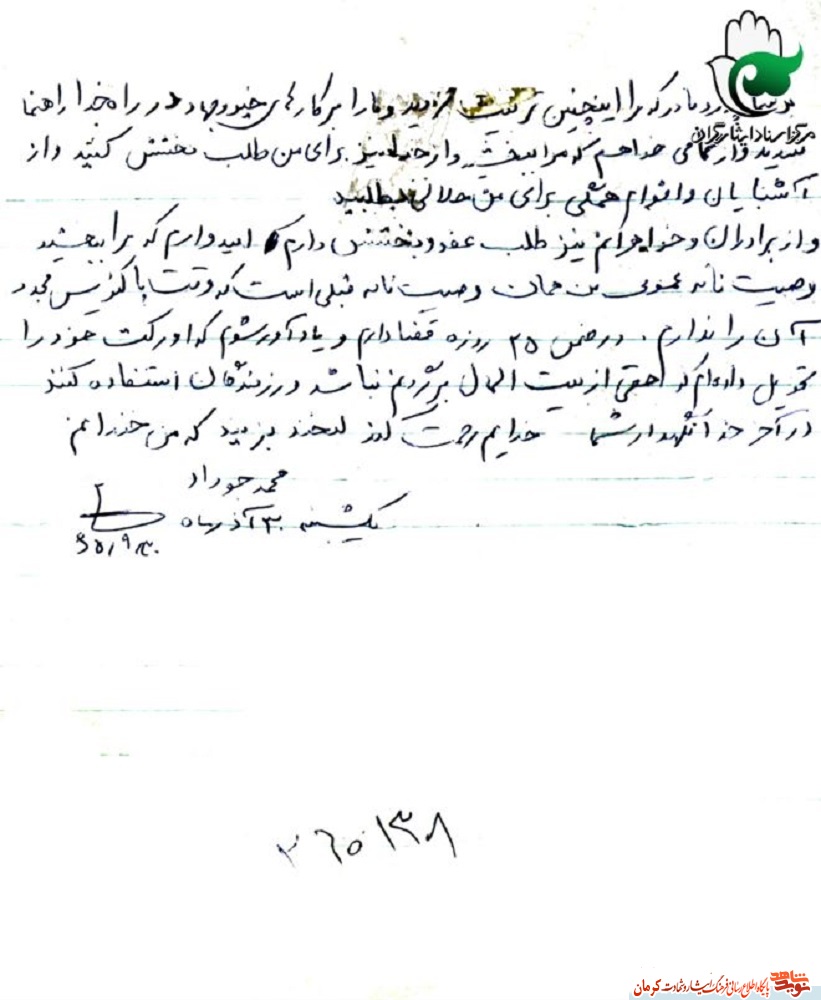 مرکز اسناد ایثارگران
پدر و مادر که مرا اینچنین تربیت کردید و مارا بر کارهای خیر و جهاد در راه خدا راهنما
شدید و از شما می خواهم که مرا ببخشید و از خدا نیز برای من طلب بخشش کنید و از
آشنایان و اقوام همگی برای من حلالی بطلبید
و از برادران و خواهرانم نیز طلب عفو و بخشش دارم امیدوارم که مرا ببخشید
وصیت نامه عمومی من همان وصیت نامه قبلی است که وقت پاکنویس مجدد
آن را ندارم. در ضمن ۲۵ روزه قضا دارم و یادآور شوم که اورکت خود را
تحویل داده‌ام که حقی از بیت المال بر گردنم نباشد و رزمندگان استفاده کنند
در آخر خدا نگهدار شما خدایم رحمت کند لبخند بزنید که من خندانم
محمد جوراد
یکشنبه ۳۰ آذر ماه
۶۵/۹/۳۰
۲۶۵۱۳۸
نوید شاهد
پایگاه اطلاع رسانی فرهنگ ایثار و شهادت کرمان